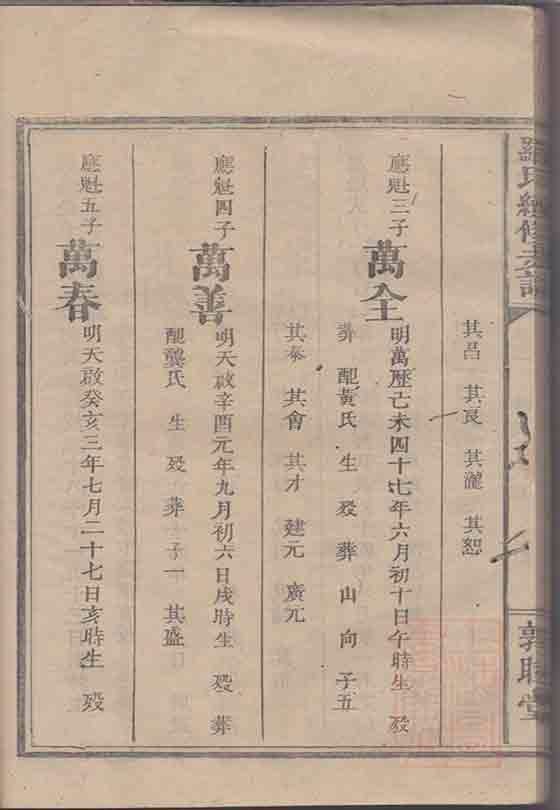 羅氏續修支譜
敦睦堂
其呂 其良 其瀧 其恕
應魁三子 萬全 明萬歷己未四十七年六月初十日午時生 殁
葬 配黃氏 生 殁 葬 山 向 子五
其泰 其會 其才 建元 廣元
應魁四子 萬善 明天啟辛酉元年九月初六日戌時生 殁 葬
配龔氏 生 殁 葬 子一 其盛
應魁五子 萬春 明天啟癸亥三年七月二十七日亥時生 殁